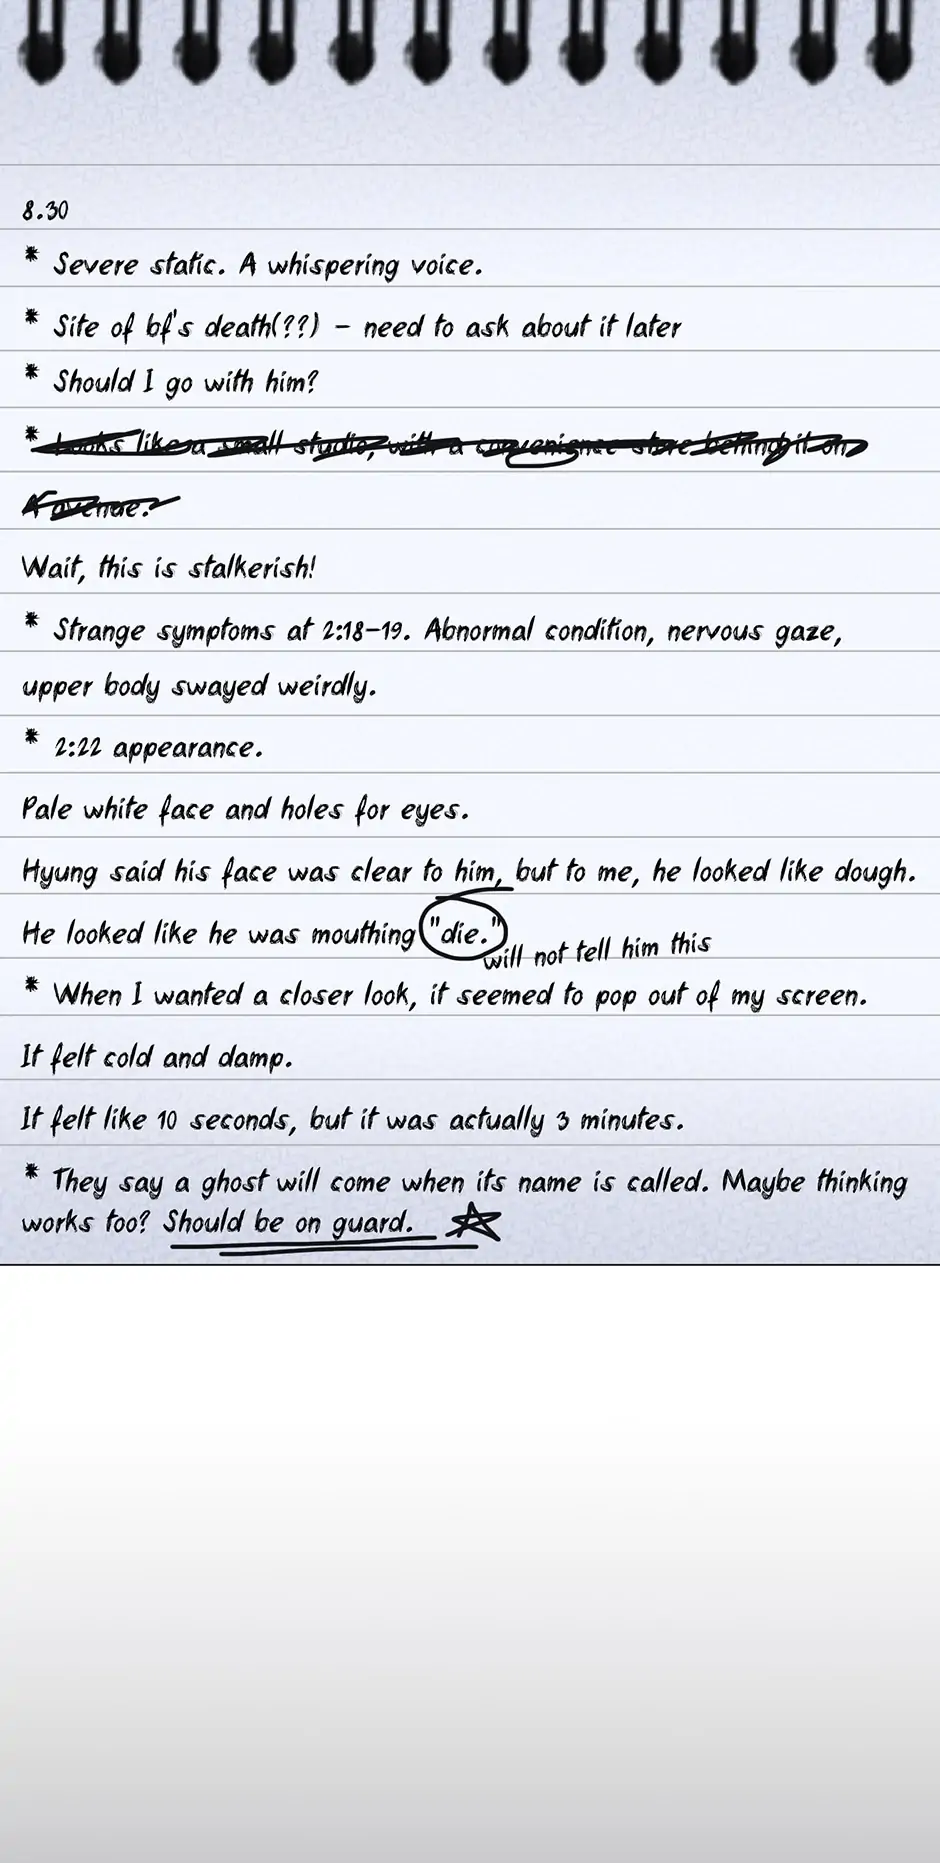 8.30
* Severe static. A whispering voice.
* Site of bf's death(??) - need to ask about it later
* Should I go with him?
* Looks like a small studio, with a convenience store behind it on
A avenue.
Wait, this is stalkerish!
* Strange symptoms at 2:18-19. Abnormal condition, nervous gaze,
upper body swayed weirdly.
* 2:22 appearance.
Pale white face and holes for eyes.
Hyung said his face was clear to him, but to me, he looked like dough.
He looked like he was mouthing "die."
will not tell him this
* When I wanted a closer look, it seemed to pop out of my screen.
It felt cold and damp.
It felt like 10 seconds, but it was actually 3 minutes.
* They say a ghost will come when its name is called. Maybe thinking
works too? Should be on guard.